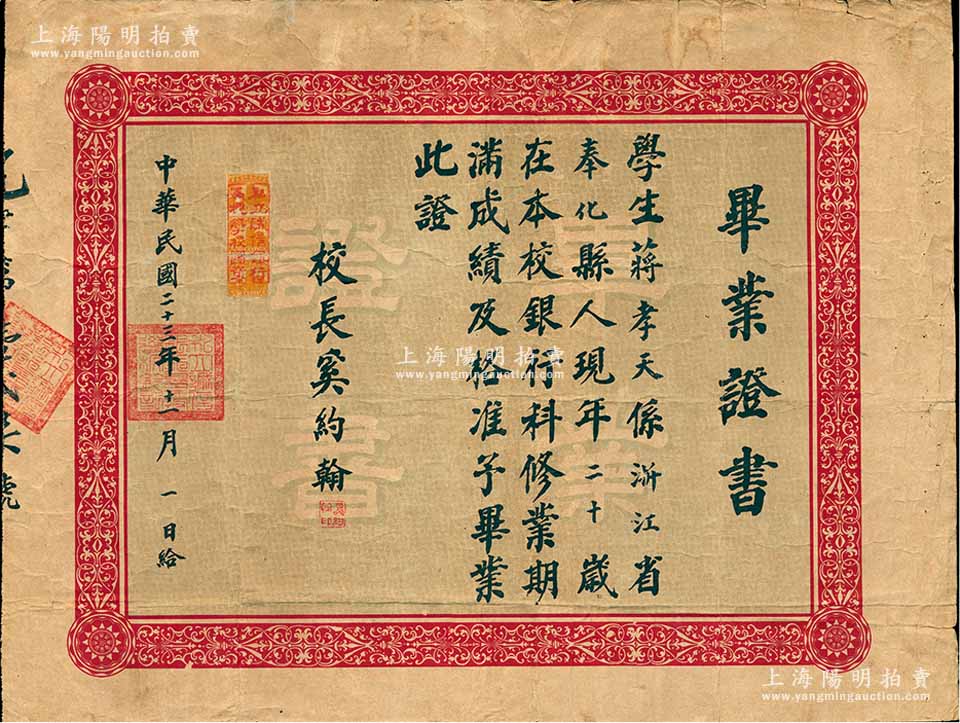 上海陽明拍賣
www.yangmingauction.com
畢業證書
學生蔣孝天係浙江省
奉化縣人現年二十歲
在本校銀行科修業期
滿成績及格准予畢業
此證
校長奚約翰
中華民國二十三年十一月一日給
畢業
證書
號
上海陽明拍賣
www.yangmingauction.com
上海陽明拍賣
www.yangmingauction.com